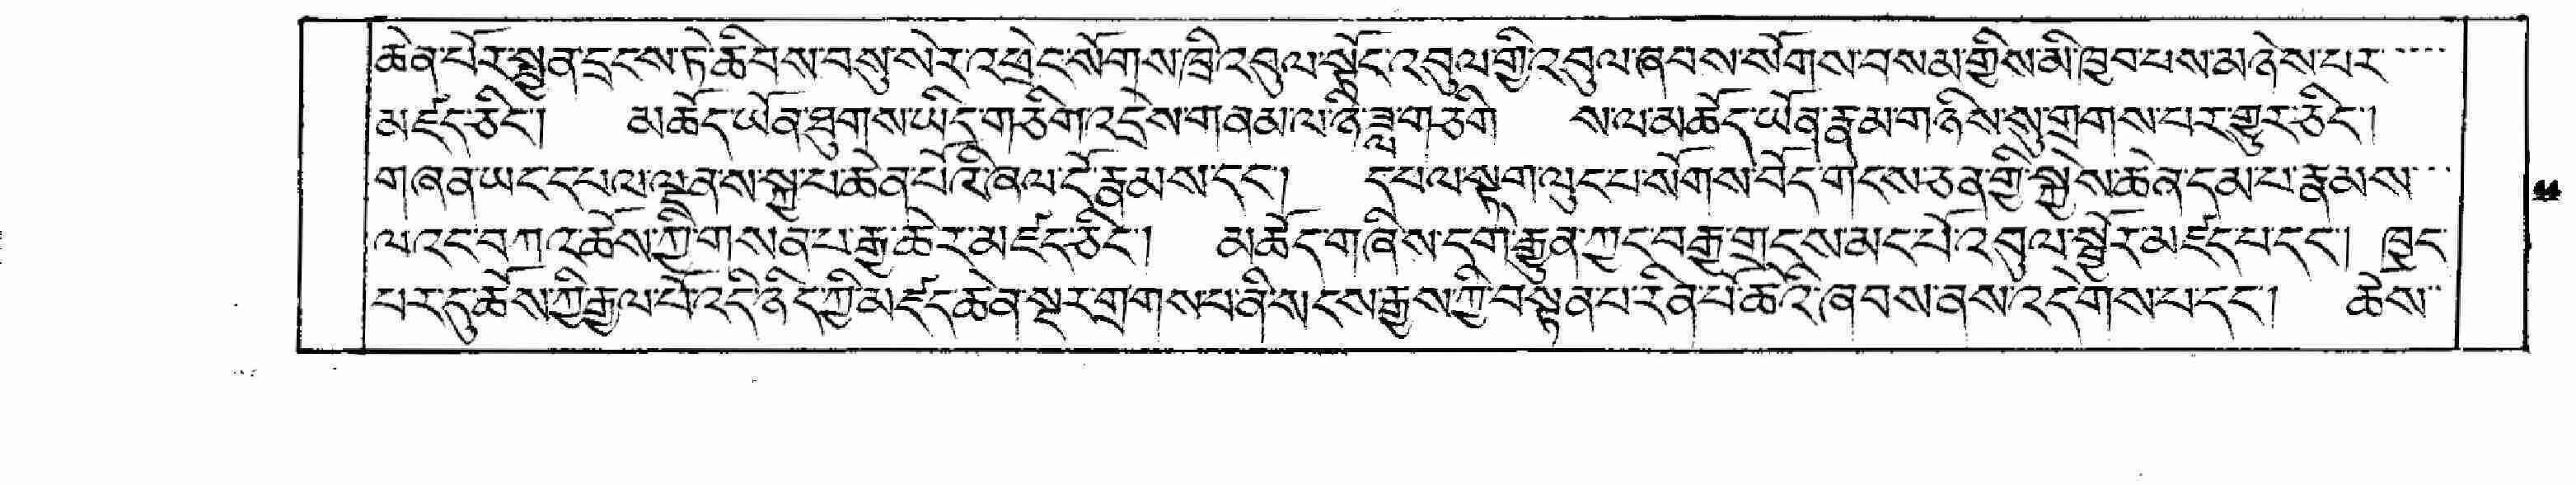 ཆེན་པོར་སྤྱན་དྲངས་ཏེ་ཆིབས་བསུ་སེར་འཕྲེང་སོགས་ཁྲི་འབུལ་སྟོང་འབུལ་གྱི་འབུལ་ཞབས་སོགས་བསམ་གྱིས་མི་ཁྱབ་པས་མཉེས་པར་
མཛད་ཅིང་། མཆོད་ཡོན་ཐུགས་ཡིད་གཅིག་འདྲེས་གནམ་ལ་ཉི་ཟླ་གཅིག ས་ལ་མཆོད་ཡོན་རྣམ་གཉིས་སུ་གྲགས་པར་གྱུར་ཅིང་།
གཞན་ཡང་དཔལ་ལྡན་ས་སྐྱ་པ་ཆེན་པོའི་ཞལ་ངོ་རྣམས་དང་། དཔལ་སྟག་ལུང་པ་སོགས་བོད་གངས་ཅན་གྱི་སྐྱེས་ཆེན་དམ་པ་རྣམས་
ལའང་བཀའ་ཆོས་ཀྱི་གསན་པ་རྒྱ་ཆེར་མཛད་ཅིང་། མཆོད་གཞིས་དགེ་རྒྱུན་ཀྱང་བརྒྱ་གྲངས་མང་པོ་འབུལ་སྦྱོར་མཛད་པ་དང་། ཁྱད་
པར་དུ་ཆོས་ཀྱི་རྒྱལ་པོ་འདི་ཉིད་ཀྱི་མཛད་ཆེན་སྔར་གྲགས་པ་ནི་སངས་རྒྱས་ཀྱི་བསྟན་པ་རིན་པོ་ཆེའི་ཞབས་ནས་འདེགས་པ་དང་། ཆོས་
44